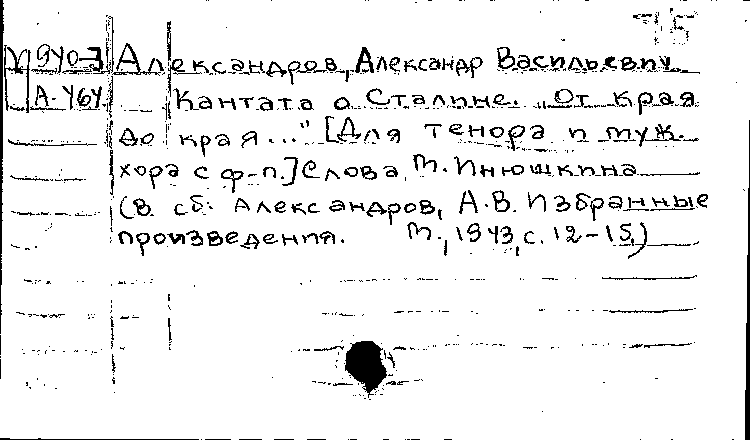 75
М 940-3 Александров, Александр Васильевич
А-464 Кантата о Сталине. „От края
до края..." [Для тенора и муж.
хора с ф-п.] Слова М. Инюшкина
(В сб: Александров, А.В. Избранные
произведения. М., 1943, с. 12-15.)